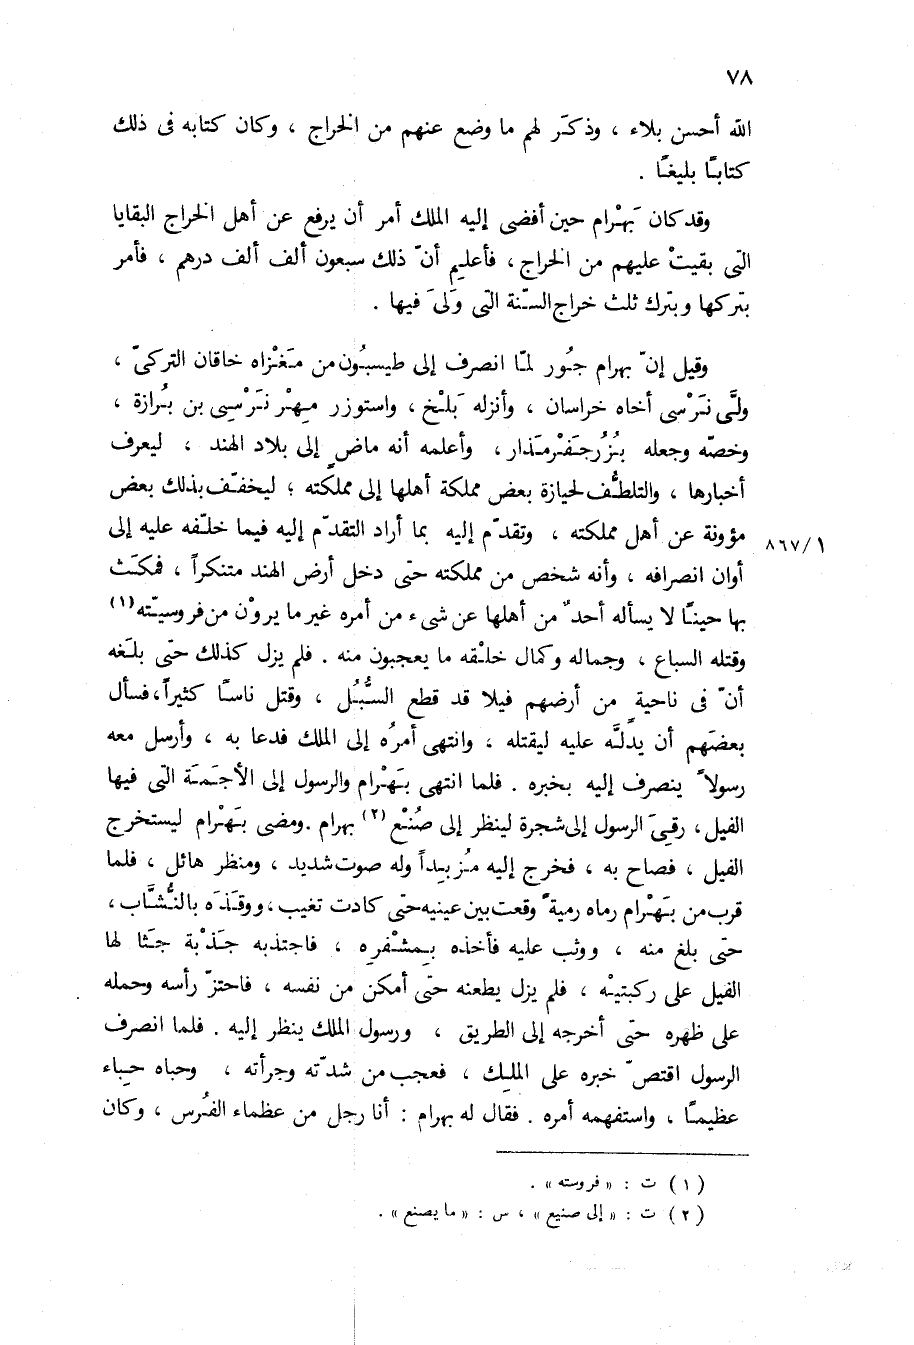 ٧٨
الله أحسن بلاء ، وذكَر لهم ما وضع عنهم من الخراج ، وكان كتابه فى ذلك
كتابًا بليغًا .
وقد كان بَهْرام حين أفضى إليه الملك أمر أن يرفع عن أهل الخراج البقايا
التى بقيتْ عليهم من الخراج ، فأعلِم أنّ ذلك سبعون ألف ألف درهم ، فأمر
بتركها وبترك ثلث خراج السّنة التى وَلىَ فيها .
وقيل إنّ بهرام جُور لمّا انصرف إلى طيسبُون من مَغْزاه خاقان التركىّ ،
ولَّى نَرْسى أخاه خراسان ، وأنزله بَلْخ ، واستوزر مِهْر نَرْسِى بن بُرازة ،
وخصّه وجعله بُزُرجَفْرمَذار ، وأعلمه أنه ماضٍ إلى بلاد الهند ، ليعرف
أخبارها ، والتلطُّف لحيازة بعض مملكة أهلها إلى مملكته ؛ ليخفّف بذلك بعض
مؤونة عن أهل مملكته ، وتقدّم إليه بما أراد التقدّم إليه فيما خلّفه عليه إلى
٨٦٧/١
أوان انصرافه ، وأنه شخص من مملكته حتى دخل أرض الهند متنكراً ، فمكث
بها حينًا لا يسأله أحدٌ من أهلها عن شىء من أمره غير ما يروْن من فروسيّته (١)
وقتله السباع ، وجماله وكمال خلْقه ما يعجبون منه . فلم يزل كذلك حتى بلَغه
أنّ فى ناحيةٍ من أرضهم فيلا قد قطع السُّبُل ، وقتل ناسًا كثيراً ، فسأل
بعضَهم أن يدُلَّه عليه ليقتله ، وانتهى أمرُه إلى الملك فدعا به ، وأرسل معه
رسولاً ينصرف إليه بخبره . فلما انتهى بَهْرام والرسول إلى الأجَمَة التى فيها
الفيل ، رقِىَ الرسول إلى شجرة لينظر إلى صُنْع (٢) بهرام . ومضى بَهْرام ليستخرج
الفيل ، فصاح به ، فخرج إليه مُزبِداً وله صوت شديد ، ومنظر هائل ، فلما
قرب من بَهْرام رماه رميةً وقعت بين عينيه حتى كادت تغيب ، ووقَذَه بالنُّشَّاب ،
حتى بلغ منه ، ووثب عليه فأخذه بِمِشْفره ، فاجتذبه جَذْبة جَثَا لها
الفيل على ركبتيْه ، فلم يزل يطعنه حتى أمكن من نفسه ، فاحتزّ رأسه وحمله
على ظهره حتى أخرجه إلى الطريق ، ورسول الملك ينظر إليه . فلما انصرف
الرسول اقتصّ خبره على الملِك ، فعجب من شدّته وجرأته ، وحباه حِباء
عظيمًا ، واستفهمه أمره . فقال له بهرام : أنا رجل من عظماء الفُرس ، وكان
(١) ت : « فروسته » .
(٢) ت : « إلى صنيع » ، س : « ما يصنع » .